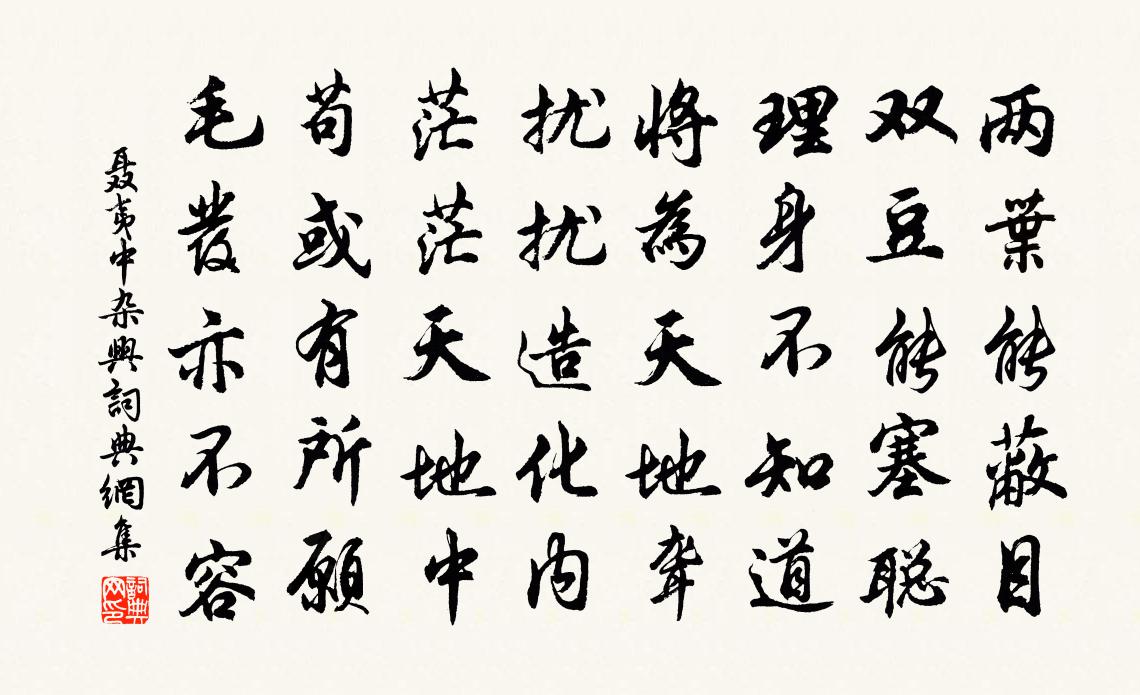 两葉能蔽目
双豆能塞聪
理身不知道
将為天地聋
扰扰造化内
茫茫天地中
苟或有所願
毛發亦不容
聂夷中杂興詞典網集
詞典网印